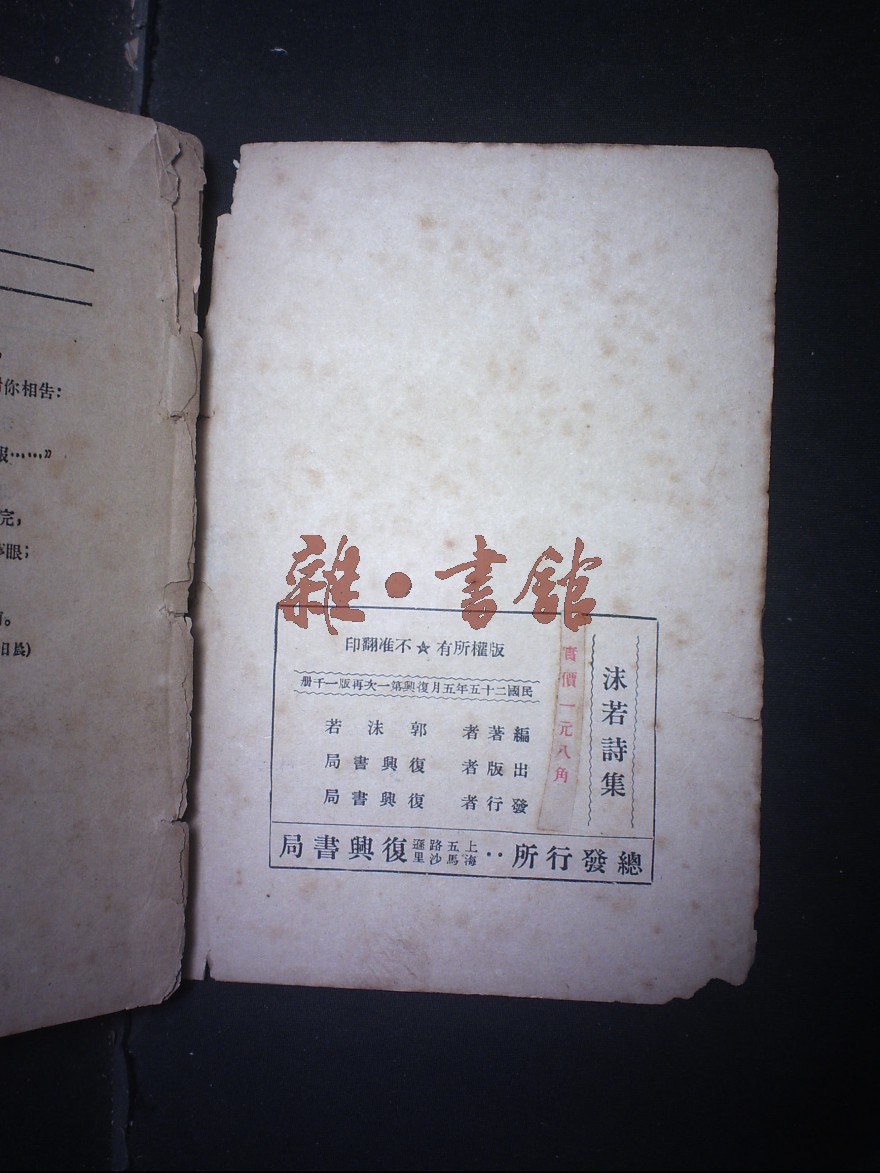 你相告:
……”
完,
眼;
。
日晨)
雜·書館
沫若詩集
實價一元八角
版權所有★不准翻印
民國二十五年五月復興第一次再版一千册
編著者 郭沫若
出版者 復興書局
發行者 復興書局
總發行所:上海五馬路沙遜里復興書局